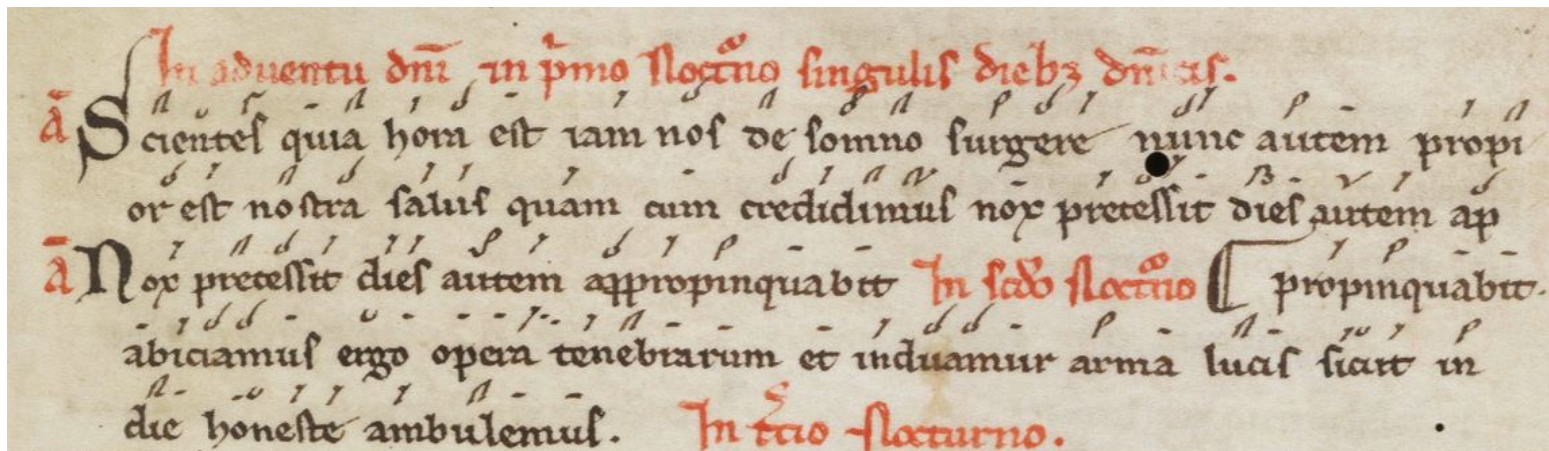 In aduentu dnī in p̄mo Noct͛no singulis dieb; dn̄icis.
ā Scientes quia hora est iam nos de somno surgere nunc autem propi
or est nostra salus quam cum credidimus nox precessit dies autem ap
ā Nox precessit dies autem appropinquabit In scd̄o Noct͛no propinquabit.
abiciamus ergo opera tenebrarum et induamur arma lucis sicut in
die honeste ambulemus. In t̄cio Nocturno.